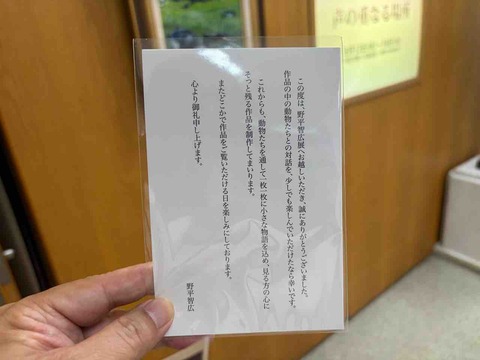 この度は、野平智広展へお越しいただき、誠にありがとうございました。
作品の中の動物たちとの対話を、少しでも楽しんでいただけたなら幸いです。
これからも、動物たちを通して一枚一枚に小さな物語を込め、見る方の心に
そっと残る作品を制作してまいります。
またどこかで作品をご覧いただける日を楽しみにしております。
心より御礼申し上げます。
野平智広
声の重なる場所